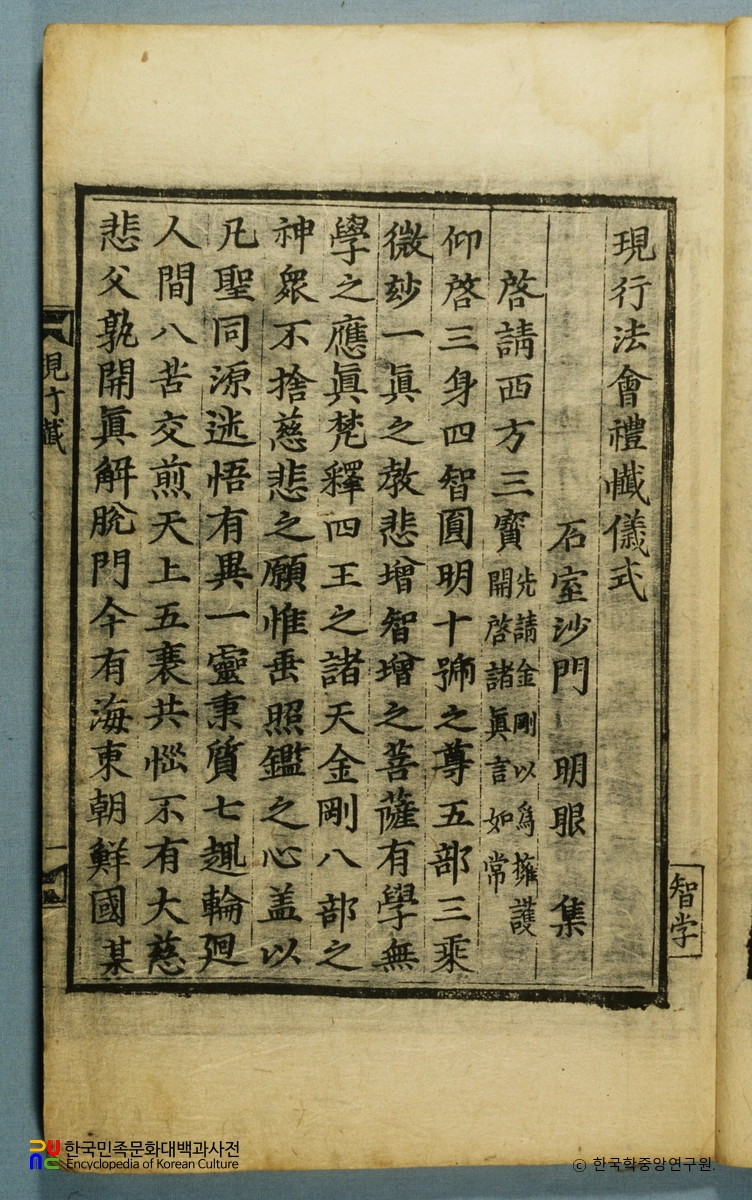 現行法會禮懺儀式
石室沙門 明眼 集
啓請西方三寶 先請金剛以爲擁護
開啓諸眞言如常
仰啓三身四智圓明十號之尊五部三乘
微妙一眞之教悲增智增之菩薩有學無
學之應眞梵釋四王之諸天金剛八部之
神衆不捨慈悲之願惟垂照鑑之心盖以
凡聖同源迷悟有異一靈秉質七趣輪廻
人間八苦交煎天上五衰共惱不有大慈
悲父孰開眞解脫門今有海東朝鮮國某
智学
現行懺
一
한국민족문화대백과사전
Encyclopedia of Korean Culture
© 한국학중앙연구원.